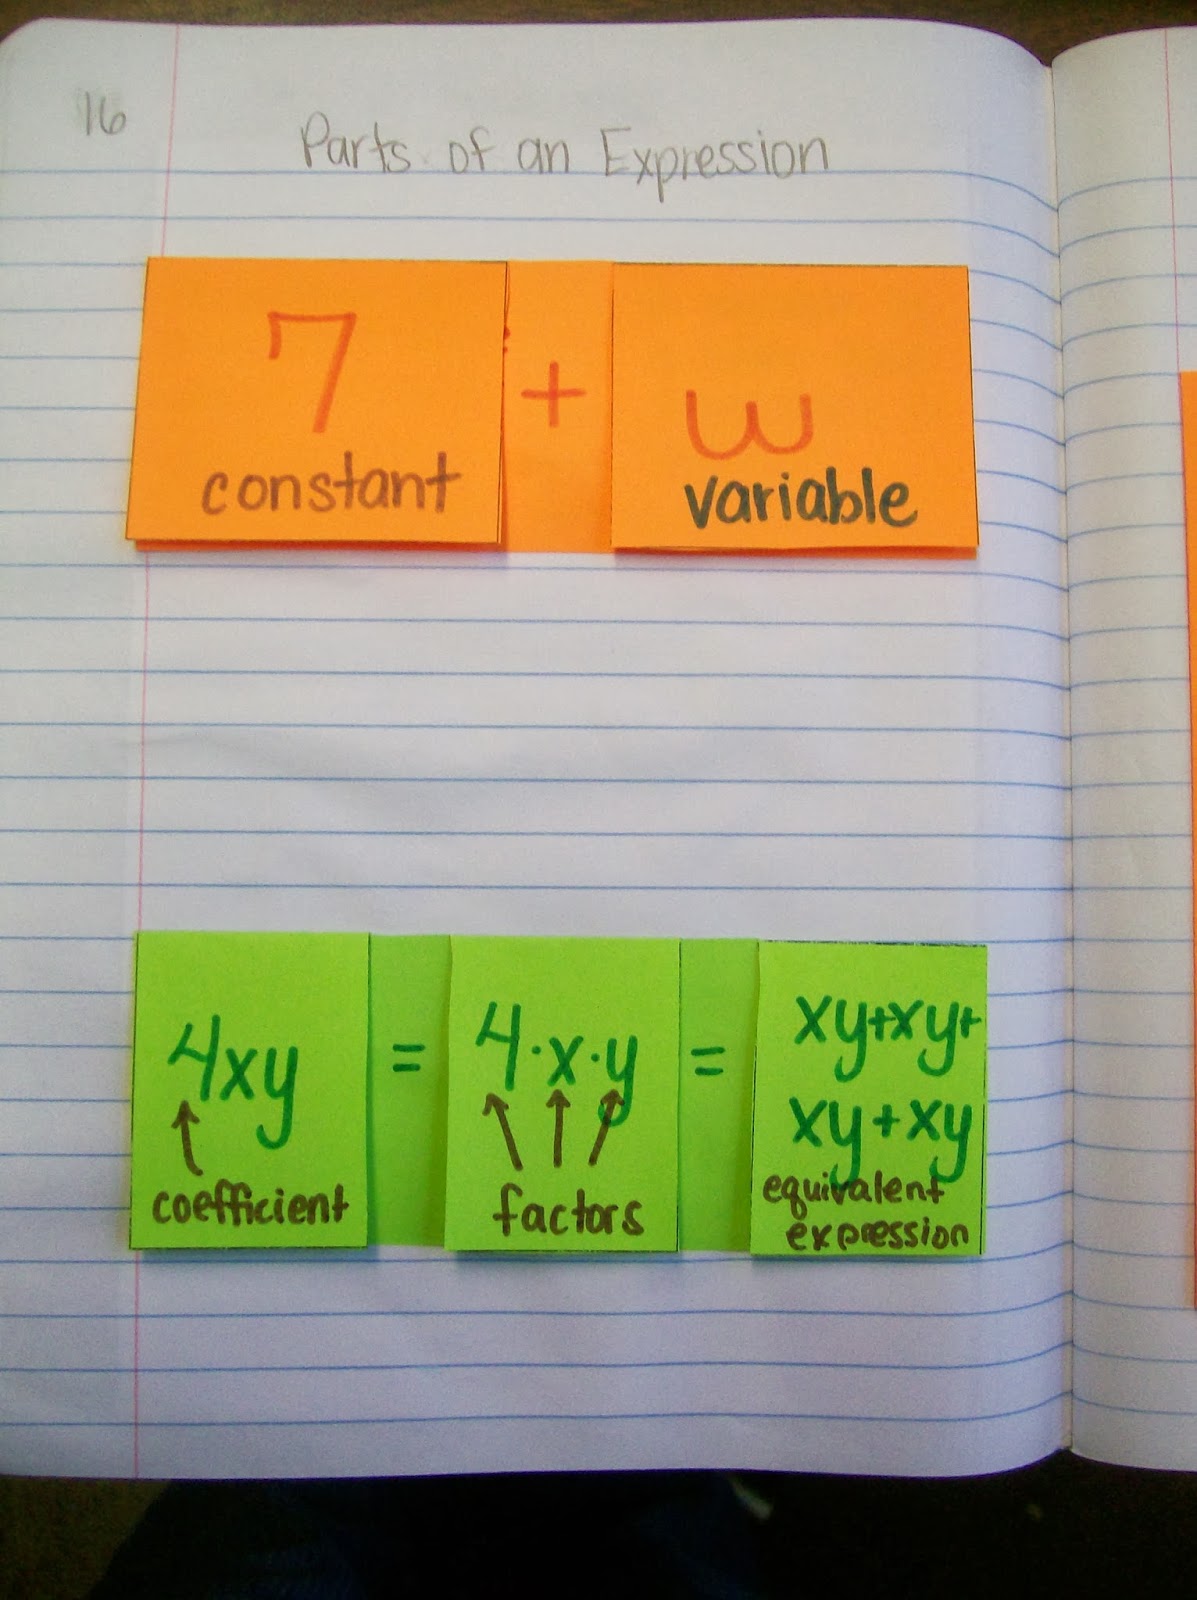 16
Parts of an Expression
7 + w
constant variable
4xy = 4·x·y = xy+xy+
xy+xy
coefficient factors equivalent
expression